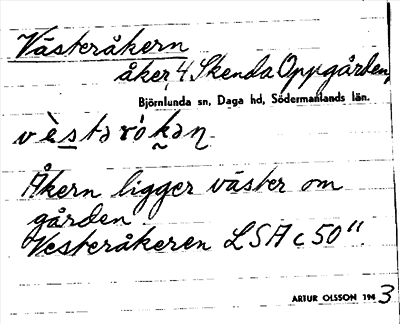 Västeråkern
åker, 4 Skenda Oppgården,
Björnlunda sn, Daga hd, Södermanlands län.
vèstəròkən.
Åkern ligger väster om
gården.
Vesteråkeren LSA c 50".
ARTUR OLSSON 1943